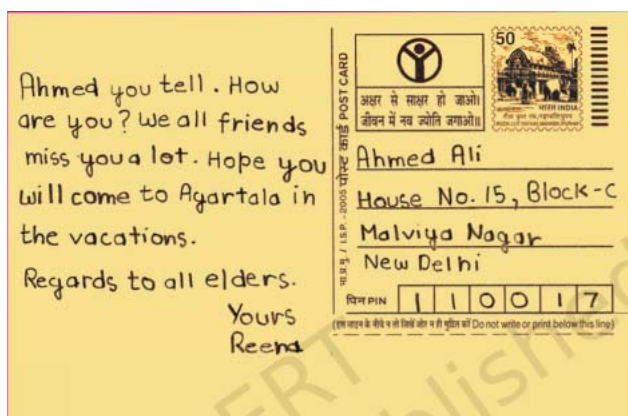 Ahmed you tell. How
are you? We all friends
miss you a lot. Hope you
will come to Agartala in
the vacations.
Regards to all elders.
Yours
Reena
पोस्ट कार्ड POST CARD
I.S.P. - 2005
अक्षर से साक्षर हो जाओ।
जीवन में नव ज्योति जगाओ॥
50
भारत INDIA
Ahmed Ali
House No. 15, Block-C
Malviya Nagar
New Delhi
पिन PIN 110017
(इस लाइन के नीचे न तो लिखें और न ही मुद्रित करें Do not write or print below this line)